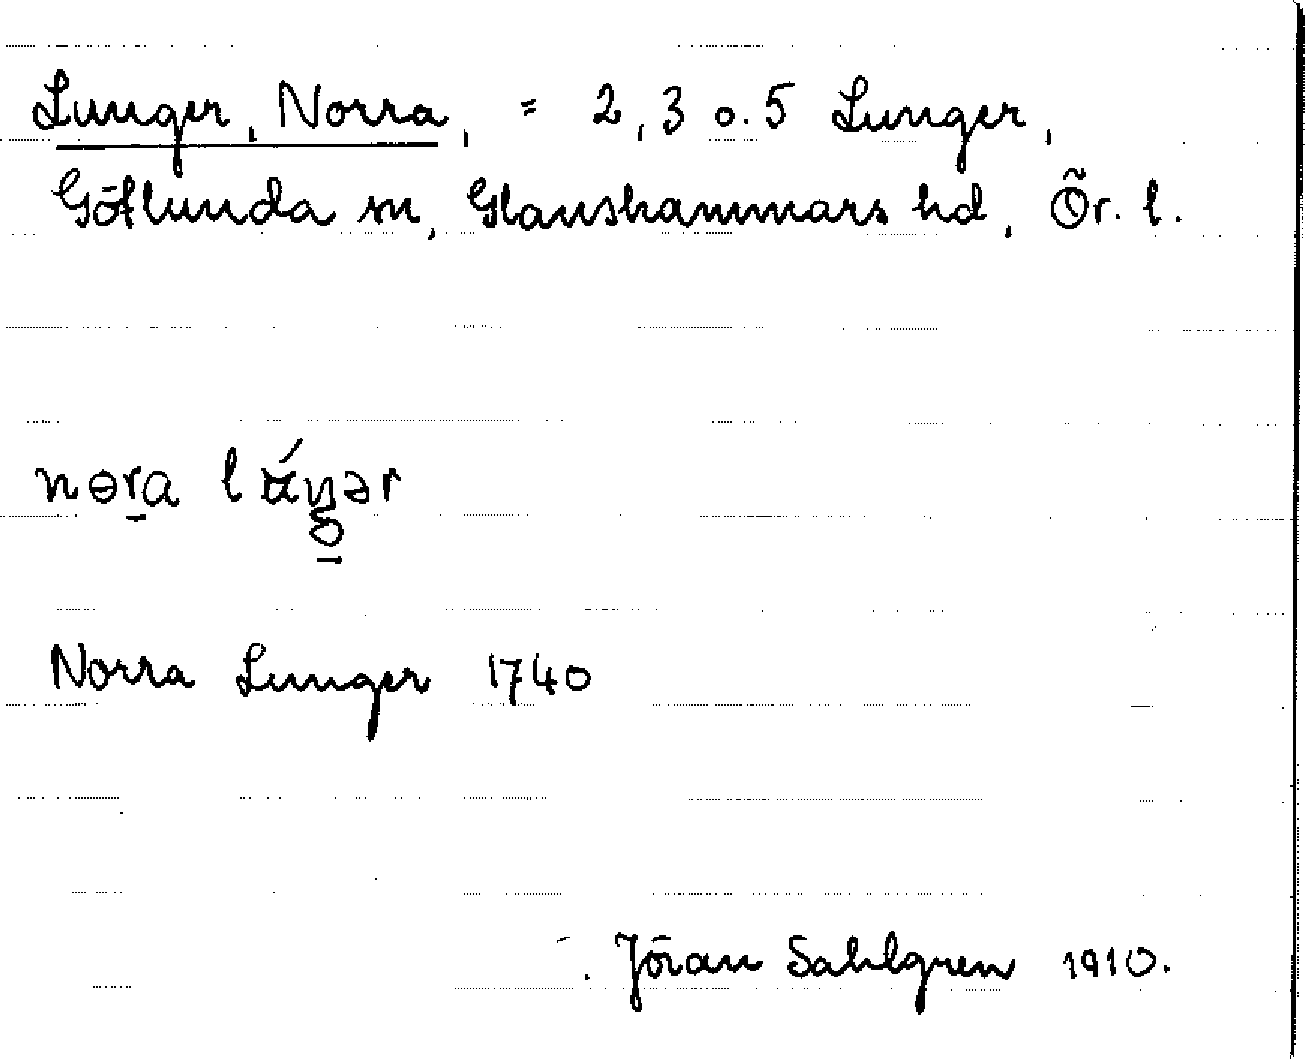 Lunger, Norra, = 2, 3 o. 5 Lunger,
Götlunda sn, Glanshammars hd, Ör. l.
nɵra
Norra Lunger 1740
Jöran Sahlgren 1910.